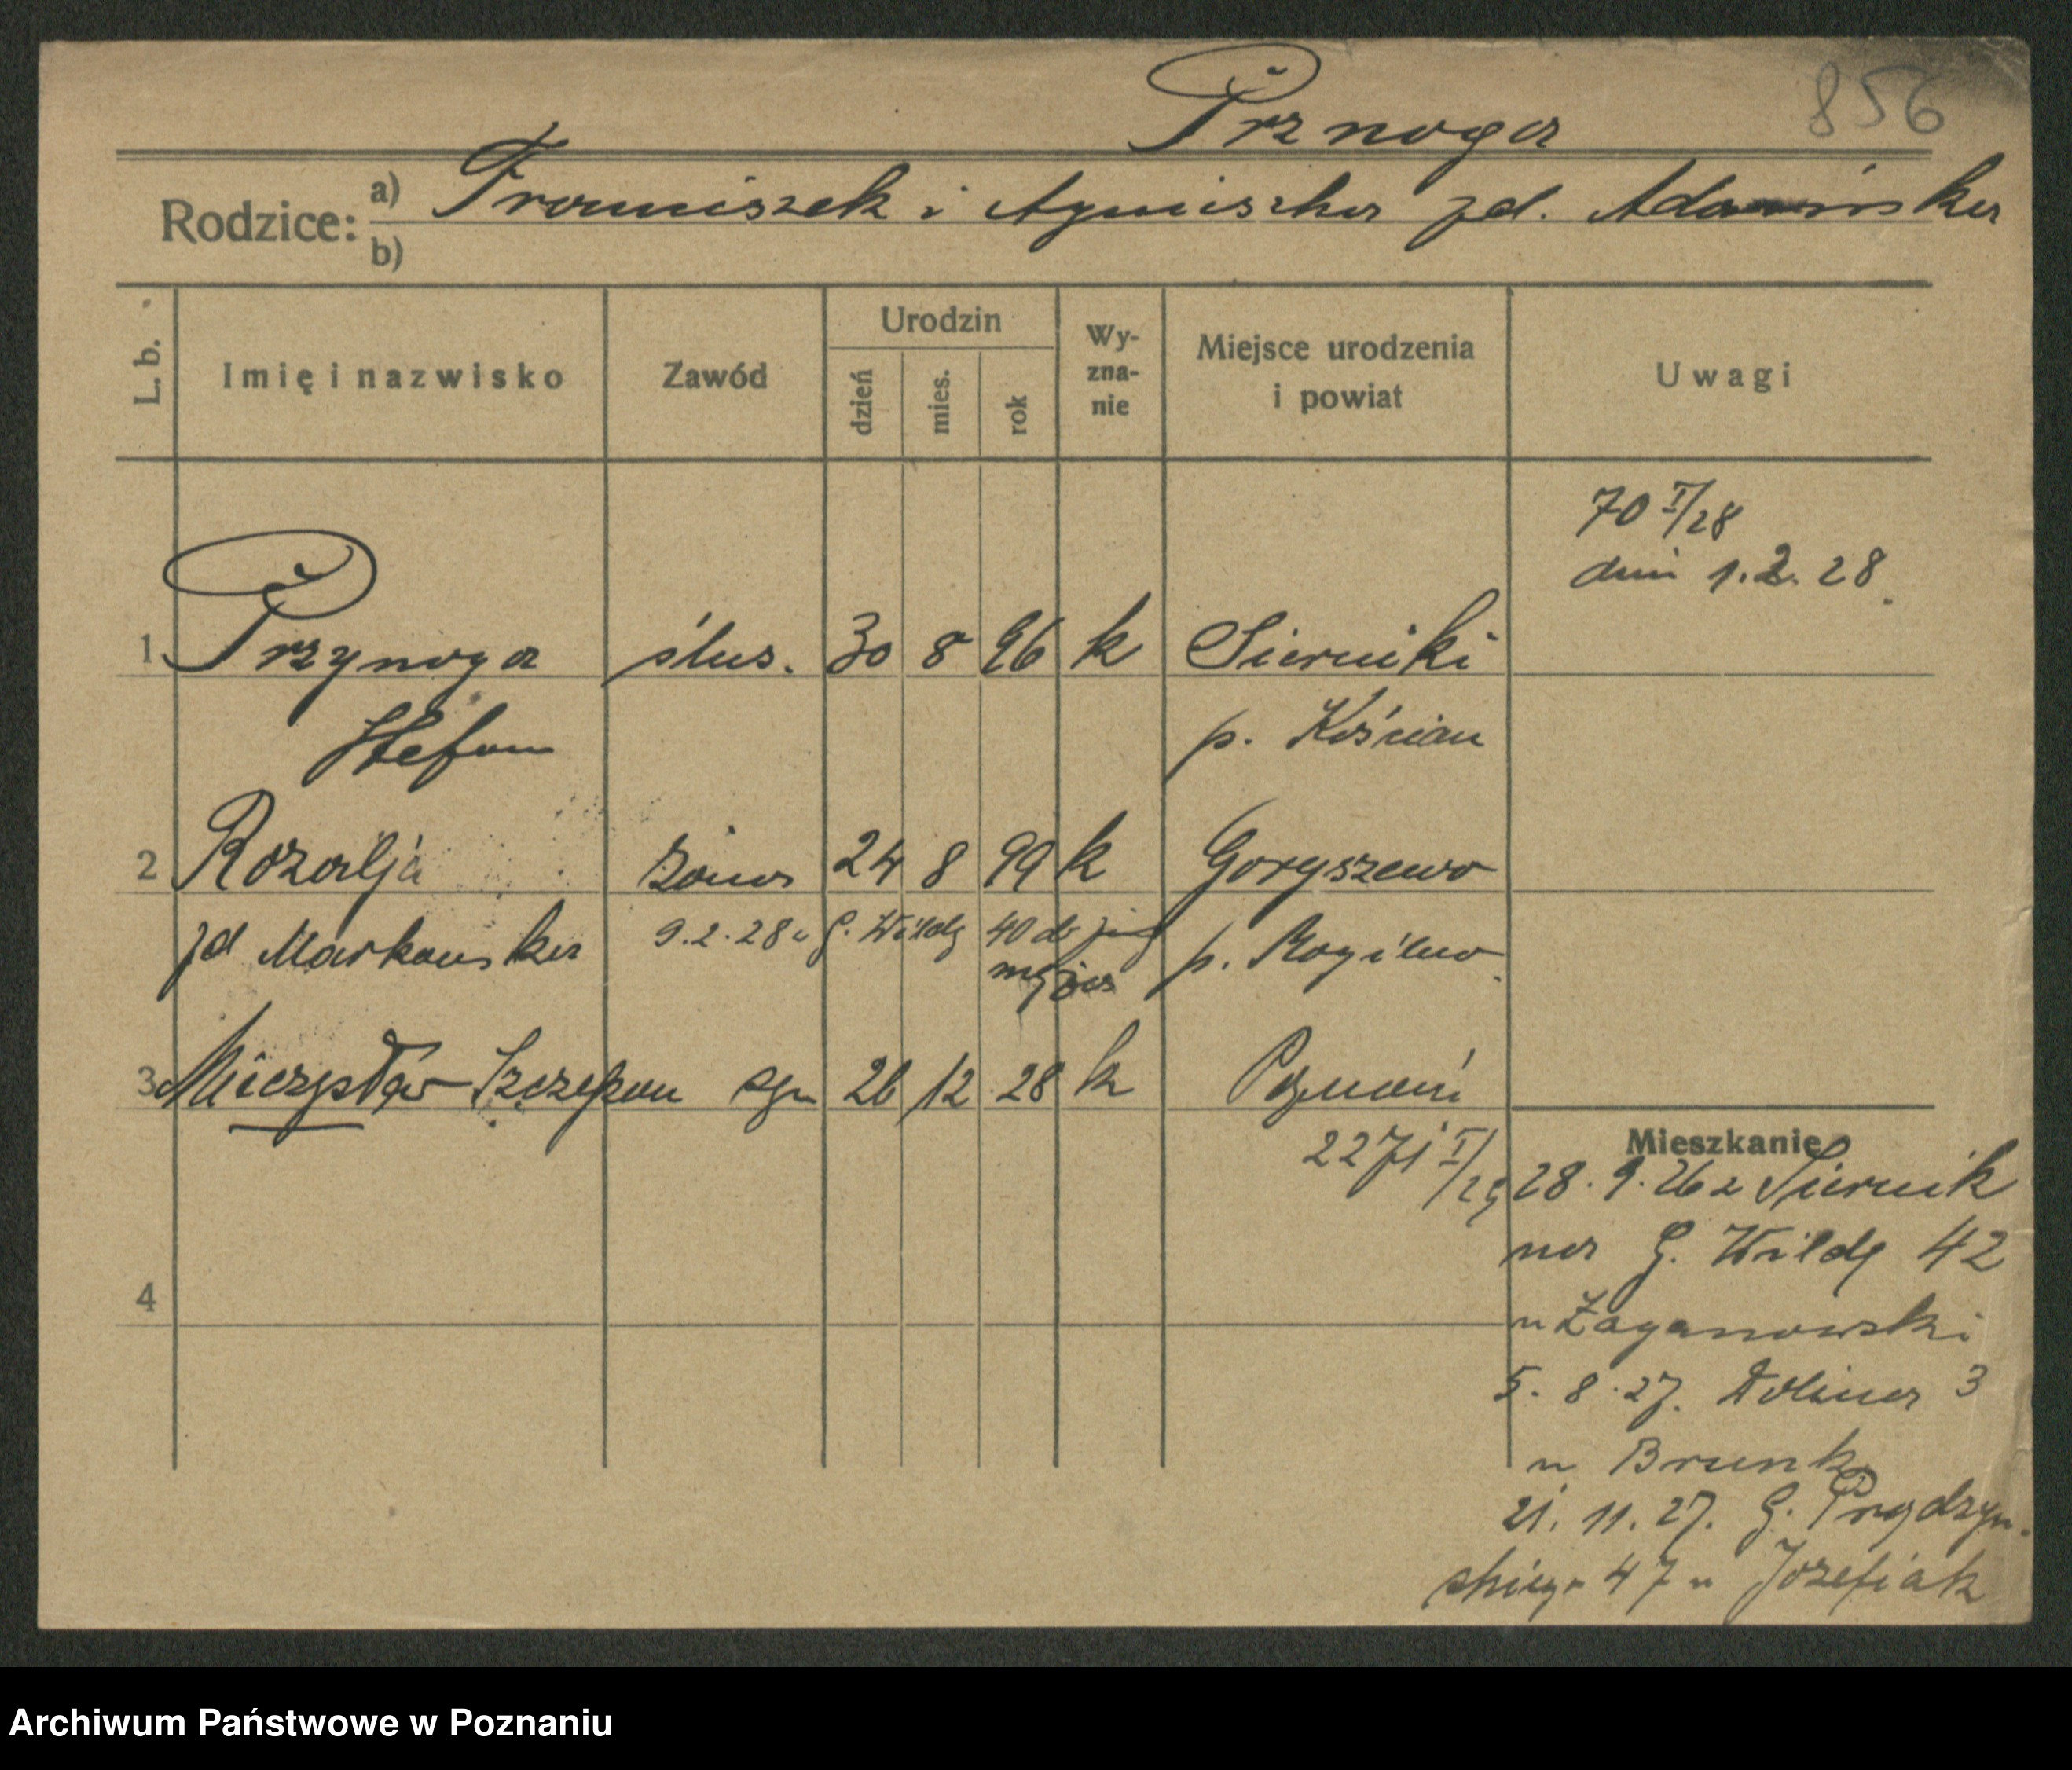 Prznoga 856
Rodzice: a) Franciszek i Agniszka zd. Adamska
b)
L. b. Imię i nazwisko Zawód Urodzin dzień mies. rok Wy-zna-nie Miejsce urodzenia i powiat Uwagi
70 I/28
dnia 1.2.28.
1 Przynoga ślus. 30 8 96 k Sierniki
Stefan p. Kościan
2 Rozalja żona 24 8 99 k Goryszewo
zd Markowska 9.2.28 G. Wildy 40 do jej męża p. Mogilno
3 Mieczysław Szczepan syn 26 12 28 k Poznań
2271 I/29
Mieszkanie
28.9.26 z Siernik
na G. Wildę 42
u Żaganowski
4
5.8.27. Dolina 3
u Brunk
21.11.27. G. Prądzyń.
skiego 47 u Józefiak
Archiwum Państwowe w Poznaniu